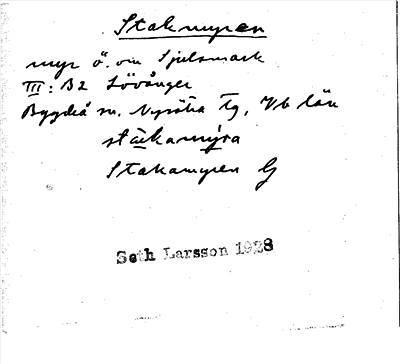 Stakmyren
myr ö. om Sjulsmark
III: B2 Lövånger
Bygdeå sn, Nysätra tg, Vb län
stakamyra
Stakamyren G
Seth Larsson 1928